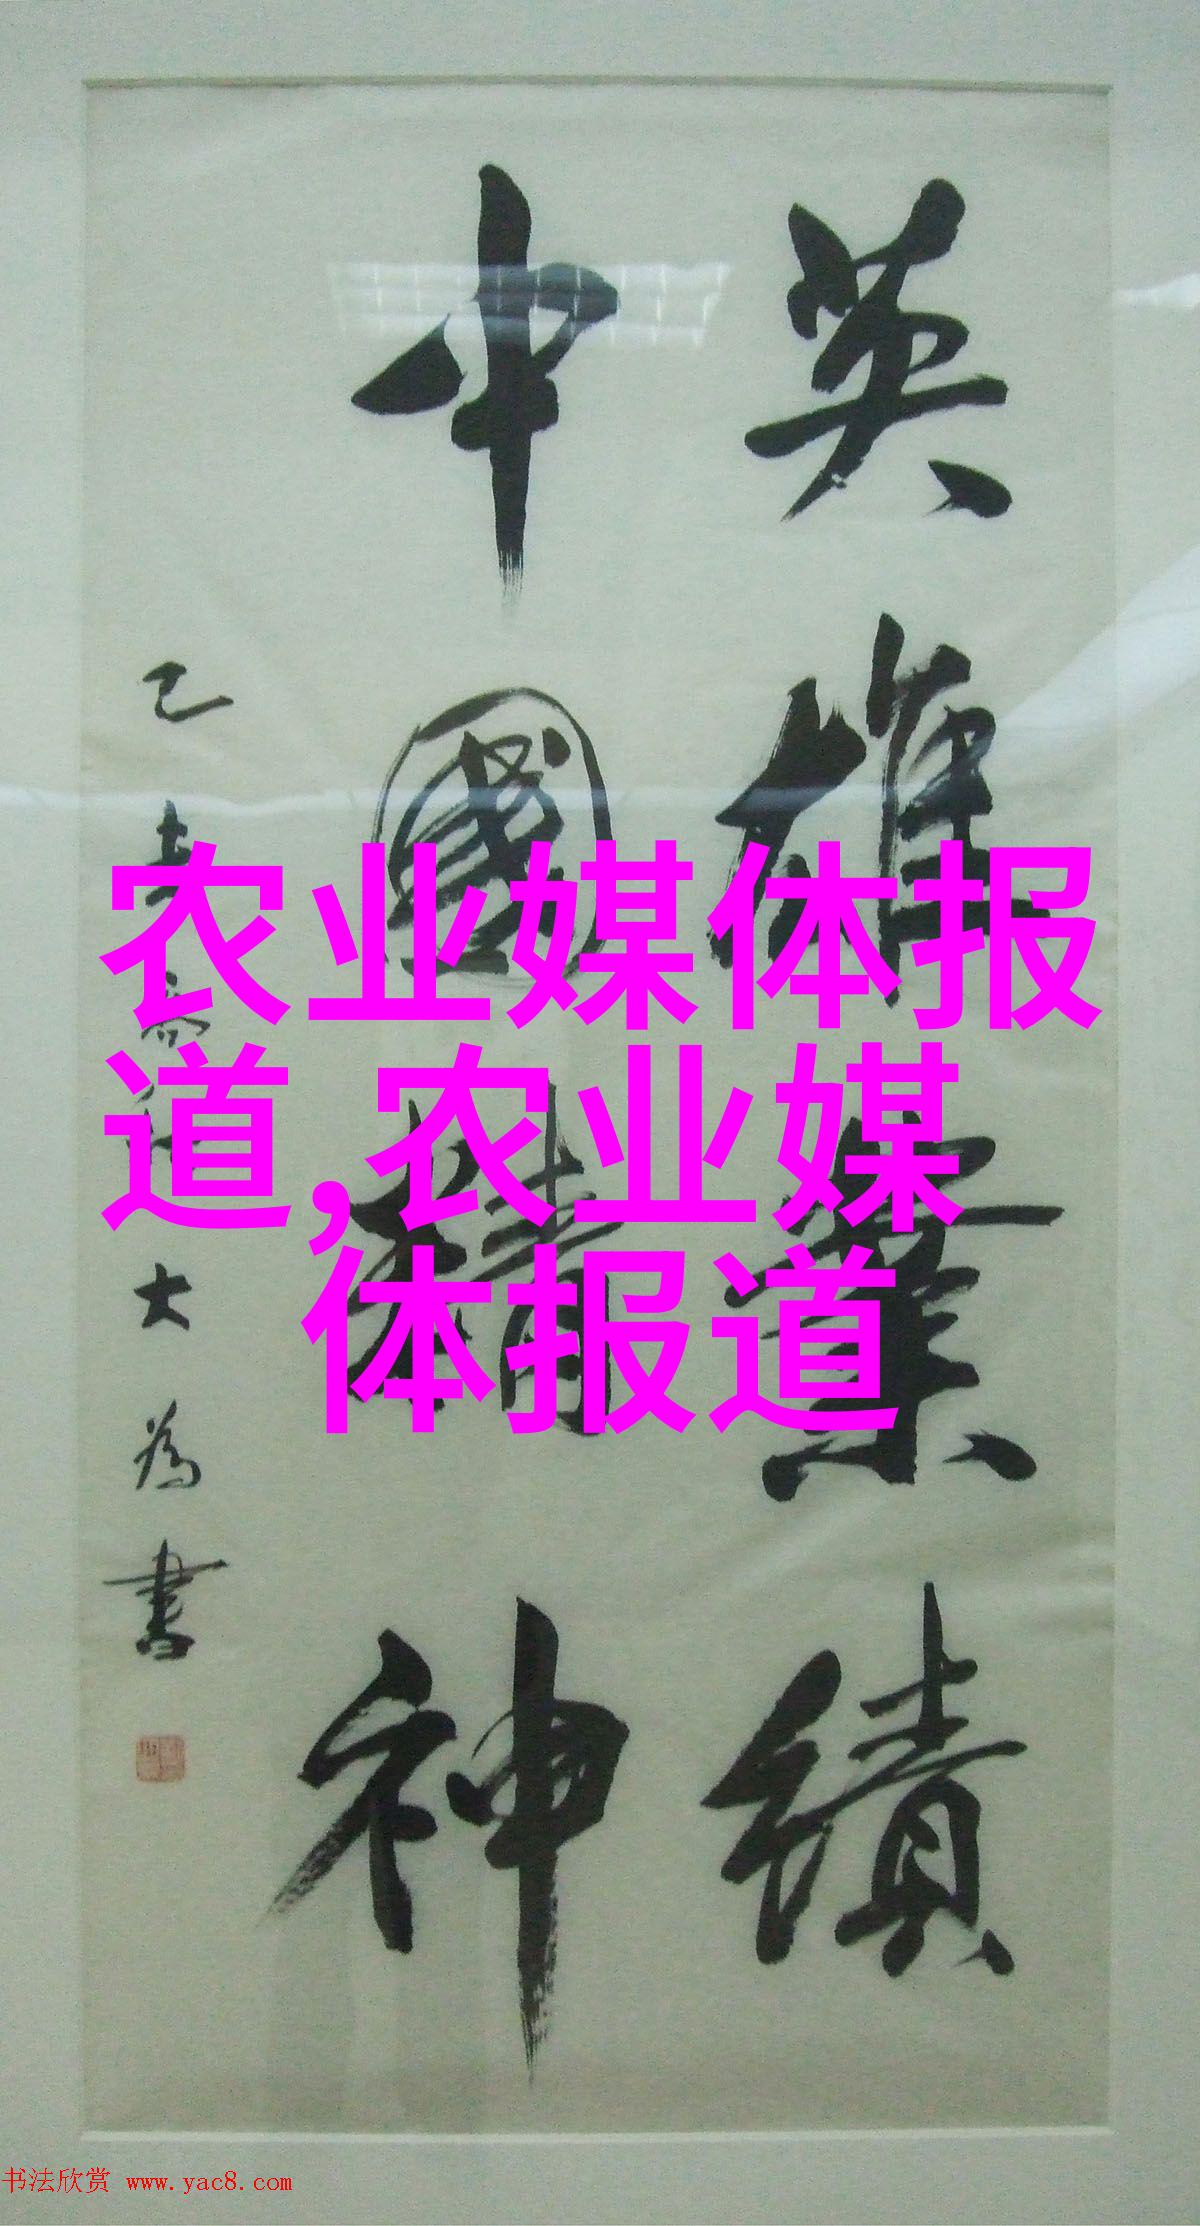 英雄業績
中國精神
己丑 大為書
农业媒体报
道,农业媒
体报道
书法欣赏 www.yac8.com